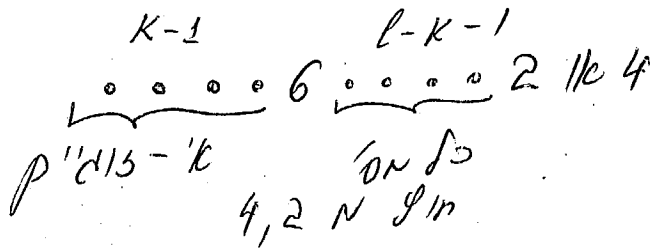 K-1 l-K-1
. . . . 6 . . . . 2 או 4
אי-זוגיים כל מס'
חוץ מ 4,2